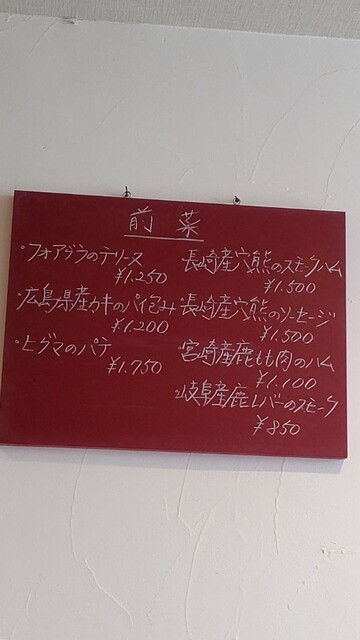 前菜
・フォアグラのテリーヌ
¥1.250
広島県産カキのパイ包み
¥1.200
・ヒグマのパテ
¥1.750
長崎産穴熊のスモークハム
¥1.500
・長崎産穴熊のソーセージ
¥1.500
・宮崎産鹿もも肉のハム
¥1.100
・岐阜産鹿レバーのスモーク
¥850